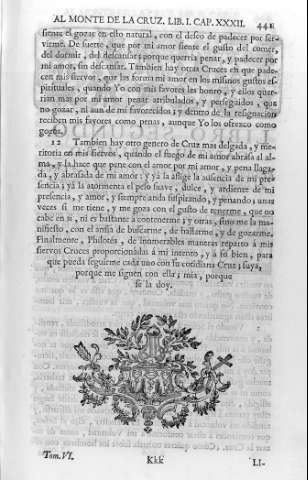 AL MONTE DE LA CRUZ. LIB. I. CAP. XXXII. 441
sienta el gozar en esto natural, con el deseo de padecer por ser-
virme. De suerte, que por mi amor siente el gusto del comer,
del dormir, del descansar; porque querria penar, y padecer por
mi amor, sin descansar. Tambien hay otras Cruces en que pade-
cen mis siervos, que les forma mi amor en los mismos gustos es-
pirituales, quando Yo con mis favores les honro, y ellos quer-
rian mas por mi amor penar atribulados, y perseguidos, que
no gozar, ni aun de mi favorecidos; y dentro de la resignacion
reciben mis favores como penas, aunque Yo los ofrezco como
gozos.
12 Tambien hay otro genero de Cruz mas delgada, y me-
ritoria en mis siervos, quando el fuego de mi amor abrasa al al-
ma, y la hace que pene con el amor por mi amor, y pena llaga-
da, y abrasada de mi amor: y yá la aflige la ausencia de mi pre-
sencia; yá la atormenta el peso suave, dulce, y ardiente de mi
presencia, y amor, y siempre anda suspirando, y penando; unas
veces si me tiene, y me goza con el gusto de tenerme, que no
cabe en si, ni es bastante á contenerme; y otras, sino me la ma-
nifiesto, con el ansia de buscarme, de hallarme, y de gozarme.
Finalmente, Philotéa, de inumerables maneras reparto á mis
siervos Cruces proporcionadas á mi intento, y á su bien, para
que pueda seguirme cada uno con su cotidiana Cruz; suya,
porque me siguen con ella; mia, porque
se la doy.
Tom. VI. Kkk LI-